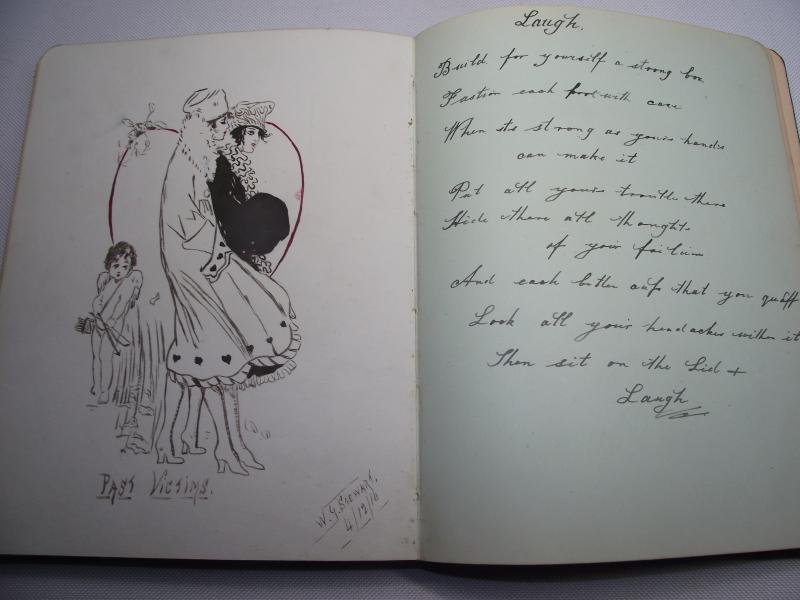 PAST VICTIMS.
W. G. STEWART.
4/12/16
Laugh.
Build for yourself a strong box
Fastion each with care
When its strong as yours hands
can make it
Put all yours trouble there
Hide there all thoughts
of your failure
And each bitter cup that you quaff
Lock all your headaches within it
Then sit on the Lid +
Laugh